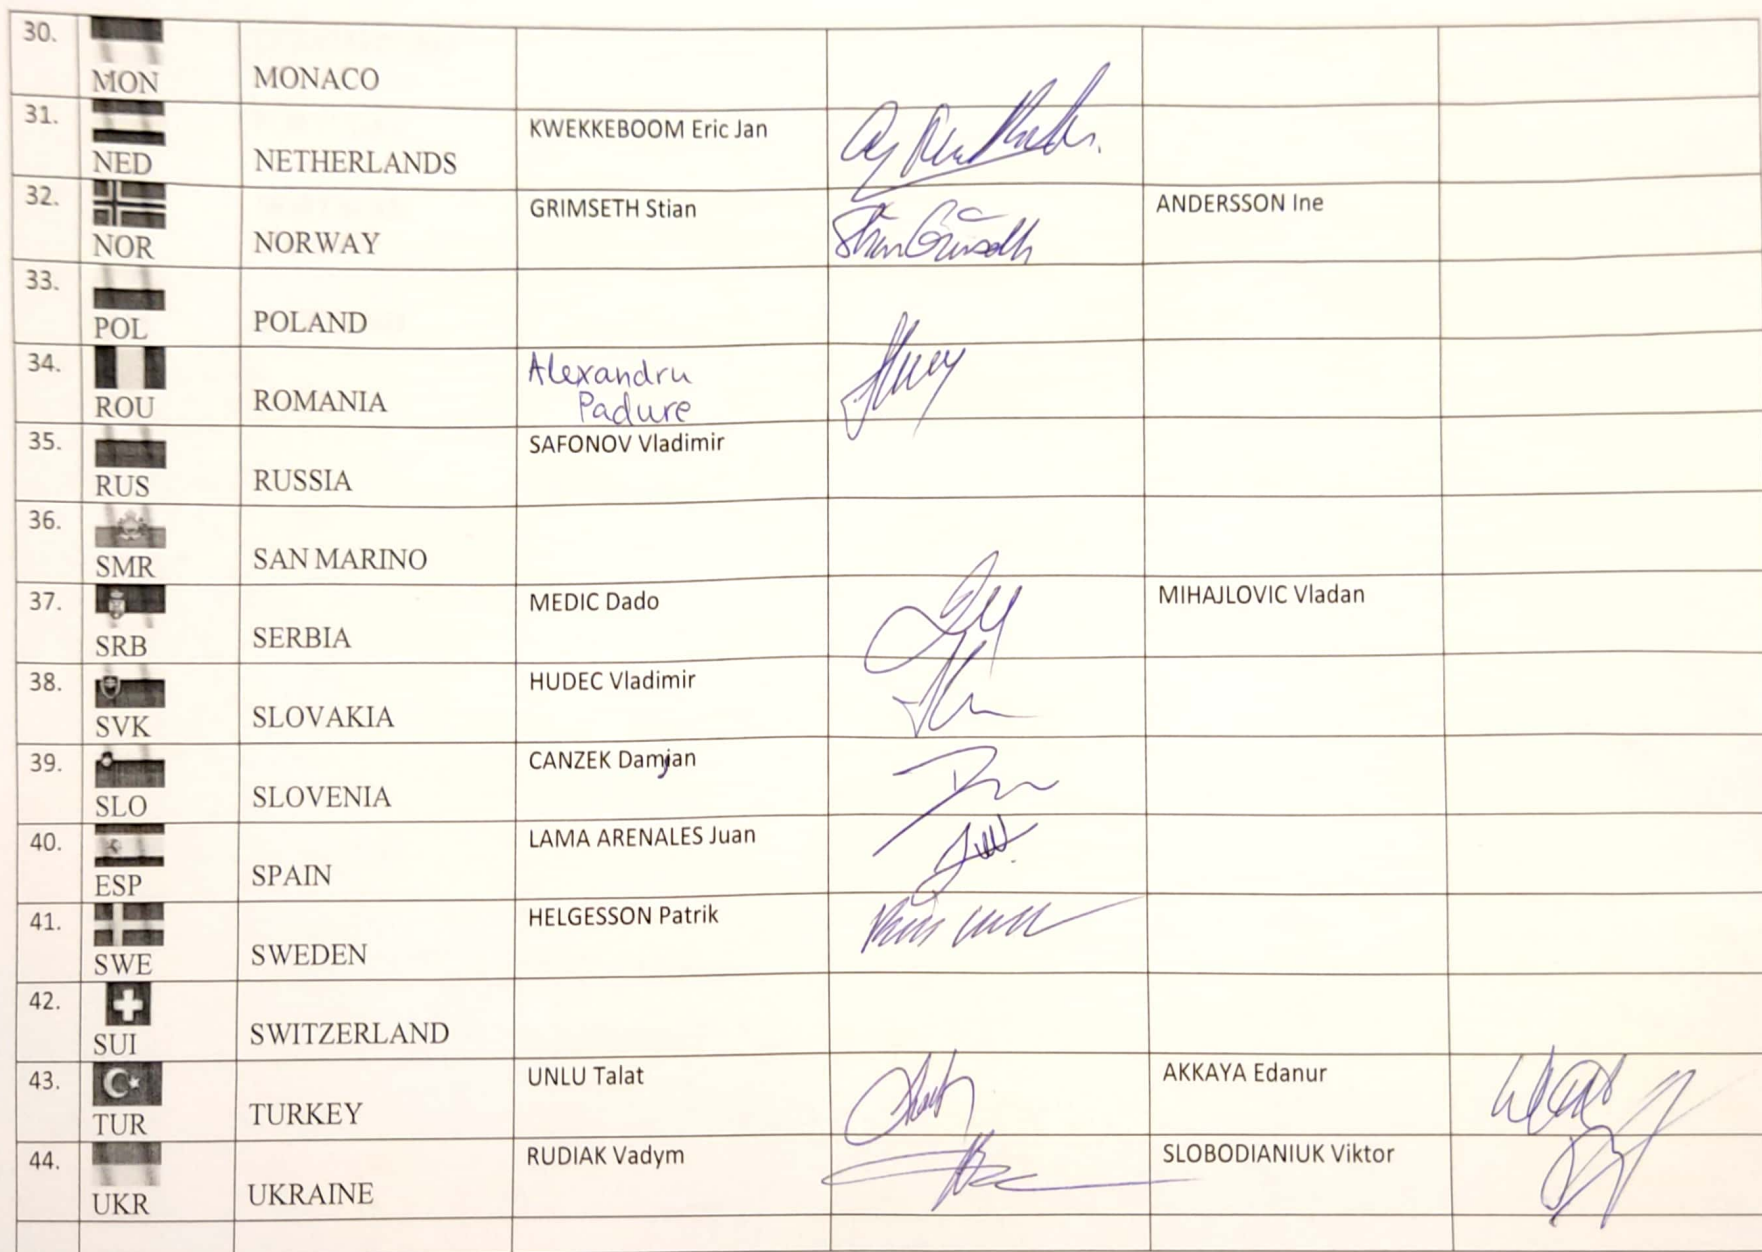 30. MON MONACO
31. NED NETHERLANDS KWEKKEBOOM Eric Jan
32. NOR NORWAY GRIMSETH Stian ANDERSSON Ine
33. POL POLAND
34. ROU ROMANIA Alexandru
Padure
35. RUS RUSSIA SAFONOV Vladimir
36. SMR SAN MARINO
37. SRB SERBIA MEDIC Dado MIHAJLOVIC Vladan
38. SVK SLOVAKIA HUDEC Vladimir
39. SLO SLOVENIA CANZEK Damjan
40. ESP SPAIN LAMA ARENALES Juan
41. SWE SWEDEN HELGESSON Patrik
42. SUI SWITZERLAND
43. TUR TURKEY UNLU Talat AKKAYA Edanur
44. UKR UKRAINE RUDIAK Vadym SLOBODIANIUK Viktor